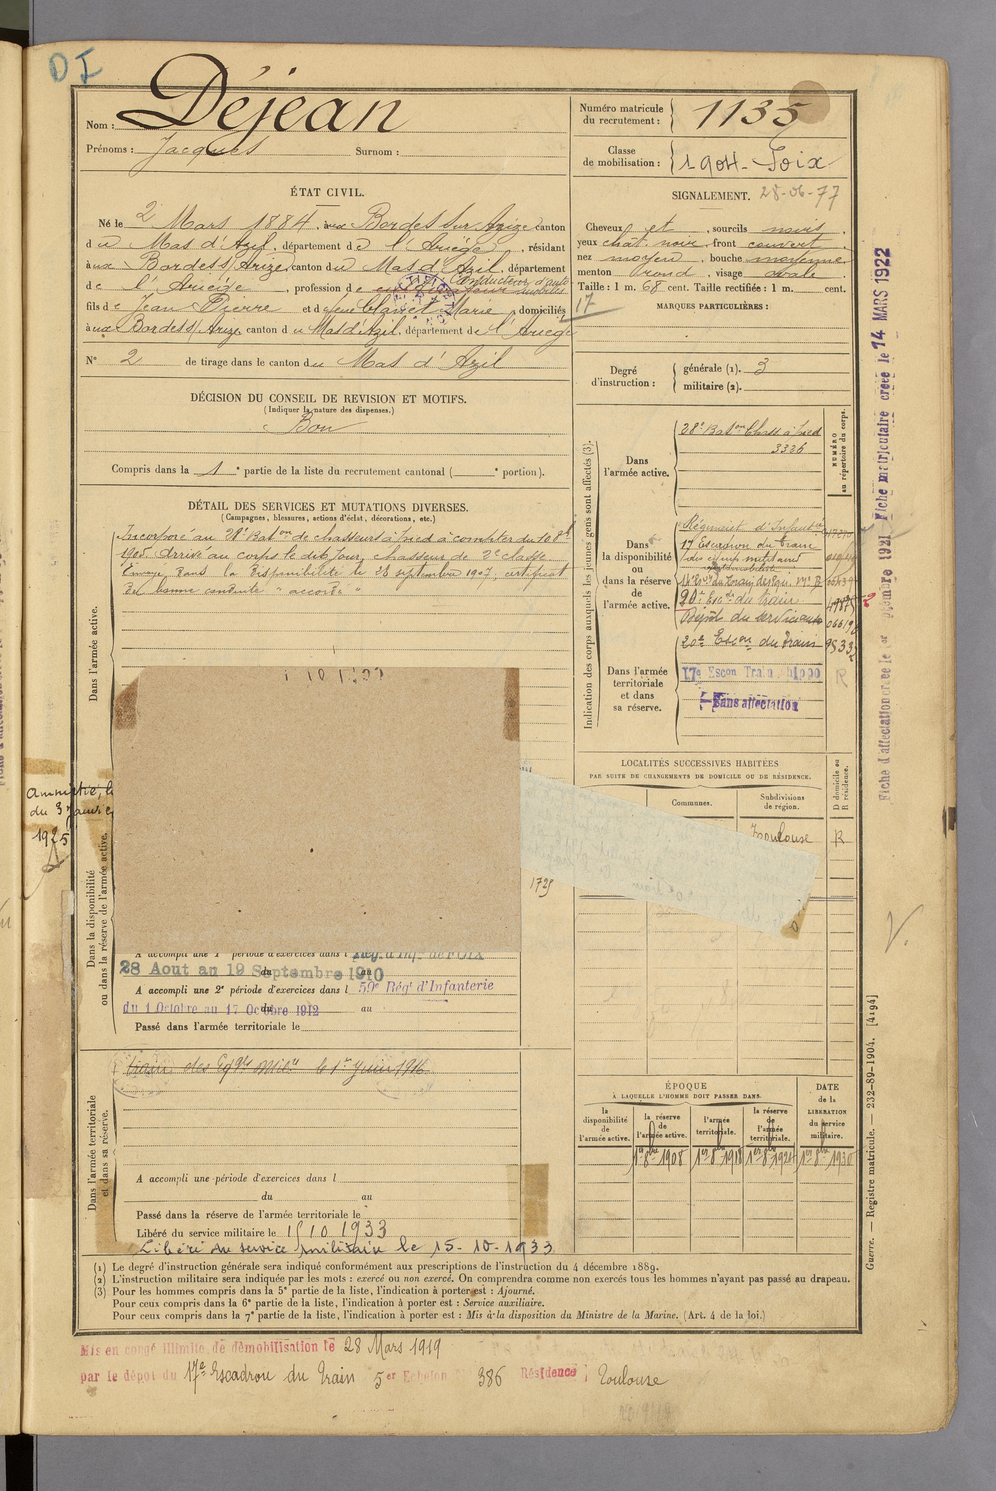 DI
Nom : Déjean
Prénoms : Jacques Surnom :
Numéro matricule du recrutement : 1135
Classe de mobilisation : 1904 - Foix
ÉTAT CIVIL.
Né le 2 Mars 1884, aux Bordes sur Arize canton
du Mas d'Azil, département de l'Ariège, résidant
aux Bordes s/ Arize, canton du Mas d'Azil, département
de l'Ariège, profession de conducteur d'auto
fils de Jean Pierre et de feue Marie, domiciliés
aux Bordes s/ Arize, canton du Mas d'Azil, département de l'Ariège
N° 2 de tirage dans le canton du Mas d'Azil
SIGNALEMENT. 28-06-77
Cheveux et , sourcils noirs ,
yeux chât. noir , front couvert ,
nez moyen , bouche moyenne ,
menton rond , visage ovale .
Taille : 1 m. 68 cent. Taille rectifiée : 1 m. cent.
17
MARQUES PARTICULIÈRES :
Degré d'instruction : générale (1). 3
militaire (2).
DÉCISION DU CONSEIL DE REVISION ET MOTIFS.
(Indiquer la nature des dispenses.)
Bon
Compris dans la 1e partie de la liste du recrutement cantonal ( e portion).
DÉTAIL DES SERVICES ET MUTATIONS DIVERSES.
(Campagnes, blessures, actions d'éclat, décorations, etc.)
Incorporé au 28e Baton de chasseurs à pied à compter du 8
1905. Arrivé au corps le dit jour, chasseur de 2e classe
Envoyé dans la disponibilité le 28 septembre 1907, certificat
de bonne conduite "accordé"
Dans l'armée active.
Indication des corps auxquels les jeunes gens sont affectés (3).
NUMÉRO au répertoire du corps.
Dans l'armée active.
28e Baton Chass à pied
3336
Dans la disponibilité ou dans la réserve de l'armée active.
Régiment d'Infanterie
17 Escadron du train
20e Esc du train
Dépôt du service
20e Escon du Train
Dans l'armée territoriale et dans sa réserve.
17e Escon Train
Sans affectation
R
Fiche d'affectation créée le
Fiche matriculaire créée le 14 MARS 1922
LOCALITÉS SUCCESSIVES HABITÉES
PAR SUITE DE CHANGEMENTS DE DOMICILE OU DE RÉSIDENCE.
Communes.
Subdivisions de région.
D domicile ou R résidence.
Toulouse R
Amnistié, l
du 3 janvier
1925
Dans la disponibilité ou dans la réserve de l'armée active.
A accompli une 1e période d'exercices dans l Rég. d'Inf. de FOIX
28 Aout au 19 Septembre 1910
A accompli une 2e période d'exercices dans l 59e Régt d'Infanterie
du 1 Octobre au 17 Octobre 1912
Passé dans l'armée territoriale le
train des Eqges Mil. le 1er Juin 1916
Dans l'armée territoriale et dans sa réserve.
A accompli une période d'exercices dans l
du au
Passé dans la réserve de l'armée territoriale le
Libéré du service militaire le 15 10 1933
Libéré du service militaire le 15-10-1933
ÉPOQUE
À LAQUELLE L'HOMME DOIT PASSER DANS.
la disponibilité de l'armée active.
la réserve de l'armée active.
l'armée territoriale.
la réserve de l'armée territoriale.
DATE de la LIBÉRATION du service militaire.
1er 8bre 1908
1er 8bre 1918
1er 8bre 1924
1er 8bre 1930
(1) Le degré d'instruction générale sera indiqué conformément aux prescriptions de l'instruction du 4 décembre 1889.
(2) L'instruction militaire sera indiquée par les mots : exercé ou non exercé. On comprendra comme non exercés tous les hommes n'ayant pas passé au drapeau.
(3) Pour les hommes compris dans la 5e partie de la liste, l'indication à porter est : Ajourné.
Pour ceux compris dans la 6e partie de la liste, l'indication à porter est : Service auxiliaire.
Pour ceux compris dans la 7e partie de la liste, l'indication à porter est : Mis à la disposition du Ministre de la Marine. (Art. 4 de la loi.)
Guerre. — Registre matricule. — 232-89-1904. [4194]
Mis en congé illimité de démobilisation le 28 Mars 1919
par le dépôt du 17e Escadron du Train 5er Echelon 386 Résidence Toulouse